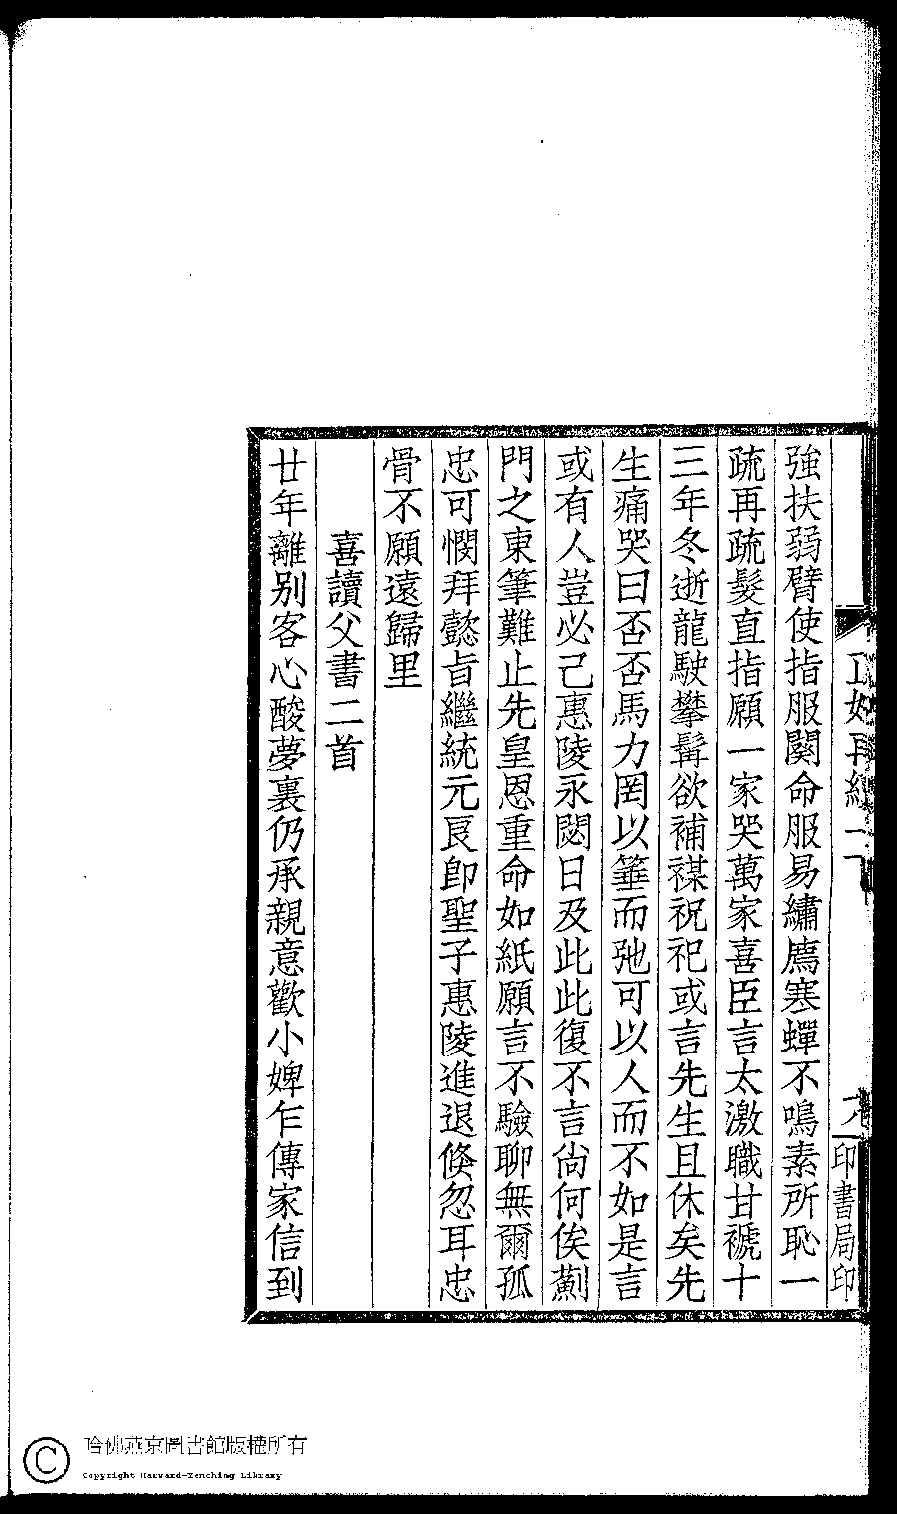 強扶弱臂使指服闋命服易繡廌寒蟬不鳴素所恥一
疏再疏髮直指願一家哭萬家喜臣言太激職甘褫十
三年冬逝龍駛攀髯欲補禖祝祀或言先生且休矣先
生痛哭曰否否馬力罔以箠而弛可以人而不如是言
或有人豈必己惠陵永閟日及此此復不言尙何俟薊
門之東筆難止先皇恩重命如紙願言不驗聊無爾孤
忠可憫拜懿旨繼統元良卽聖子惠陵進退倏忽耳忠
骨不願遠歸里
喜讀父書二首
廿年離别客心酸夢裏仍承親意歡小婢乍傳家信到
印書局印
哈佛燕京圖書館版權所有
Copyright Harvard-Yenching Library